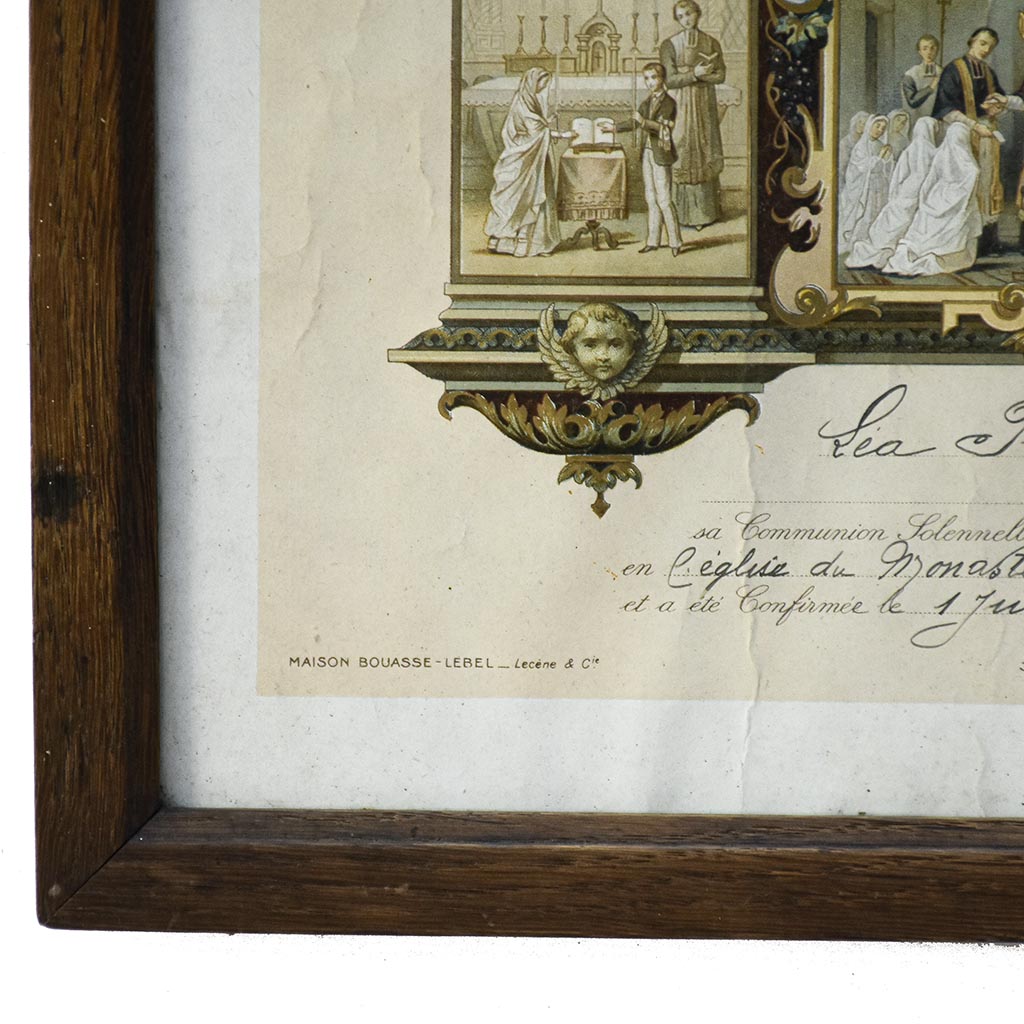 Léa
sa Communion Solennell
en l'église du Monast
et a été Confirmée le 1 Ju
MAISON BOUASSE-LEBEL _ Lecène & Cie